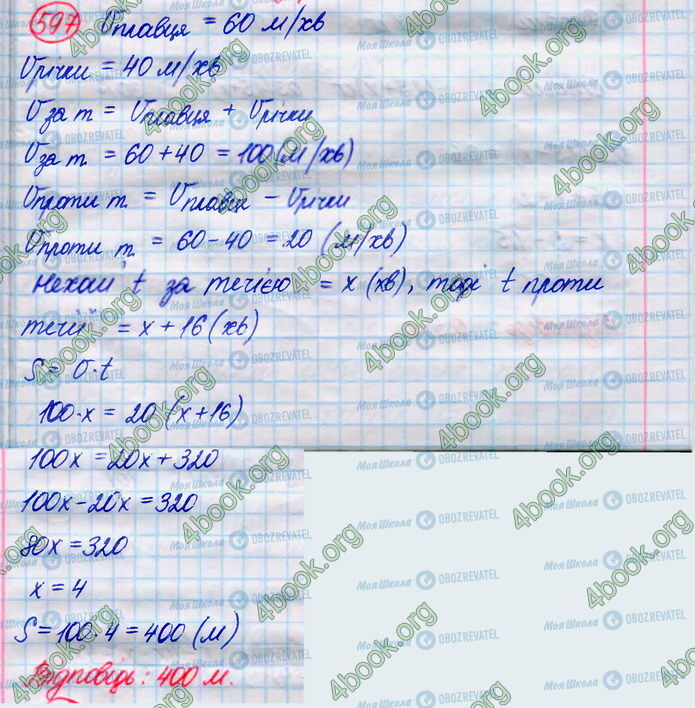 597 Vплавця = 60 м/хв
Vрічки = 40 м/хв
Vза т = Vплавця + Vрічки
Vза т. = 60 + 40 = 100 (м/хв)
Vпроти т. = Vплавця − Vрічки
Vпроти т. = 60 − 40 = 20 (м/хв)
Нехай t за течією = x (хв), тоді t проти
течії = x + 16 (хв)
S = V · t
100·x = 20 (x+16)
100x = 20x + 320
100x − 20x = 320
80x = 320
x = 4
S = 100·4 = 400 (м)
Відповідь: 400 м.